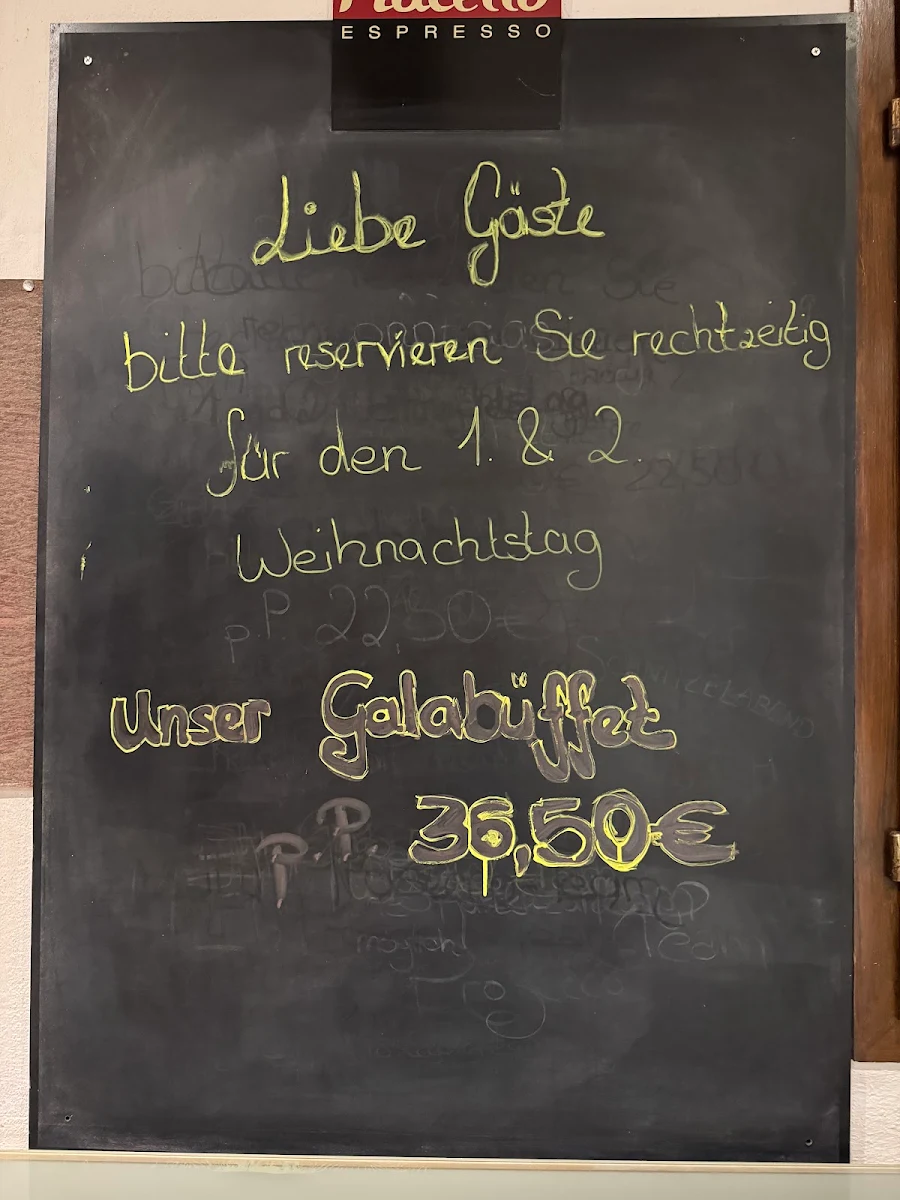 ESPRESSO
Liebe Gäste
bitte reservieren Sie rechtzeitig
für den 1. & 2.
Weihnachtstag
p.P. 22,50€
Unser Galabüffet
P.P. 36,50€